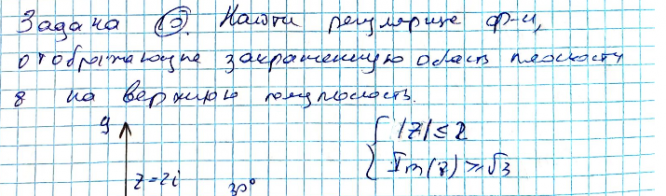 Задача 10. Найти регулярные ф-и,
отображающие закрашенную область плоскости
z на верхнюю полуплоскость.
y
|z| ≤ 2
Im(z) ≥ √3
z=2i
30°